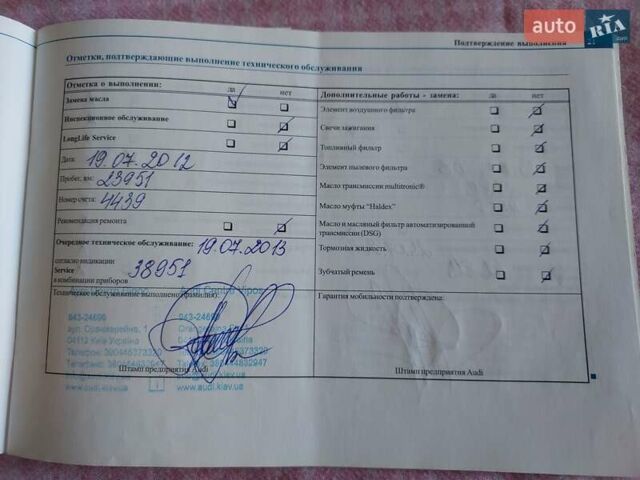 auto RIA .com
Подтверждение выполнения
Отметки, подтверждающие выполнение технического обслуживания
Отметка о выполнении: да нет
Замена масла
Инспекционное обслуживание
LongLife Service
Дата: 19.07.2012
Пробег, км: 23951
Номер счета: 4439
Рекомендация ремонта
Очередное техническое обслуживание: 19.07.2013
согласно индикации
Service 38951
в комбинации приборов
Техническое обслуживание выполнено (фамилия):
043-24696
вул. 1
04112 Київ Україна
Телефон: 380445373320
Телефакс: 380444832947
www.audi.kiev.ua
Штамп предприятия Audi
Дополнительные работы - замена: да нет
Элемент воздушного фильтра
Свечи зажигания
Топливный фильтр
Элемент пылевого фильтра
Масло трансмиссии multitronic®
Масло муфты "Haldex"
Масло и масляный фильтр автоматизированной
трансмиссии (DSG)
Тормозная жидкость
Зубчатый ремень
Гарантия мобильности подтверждена:
Штамп предприятия Audi